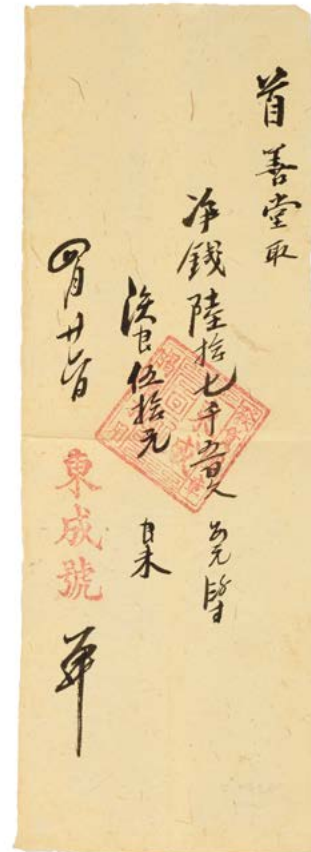 首善堂取
净錢陸拾七千五百文
洋艮伍拾元
四月廿
東成號
單